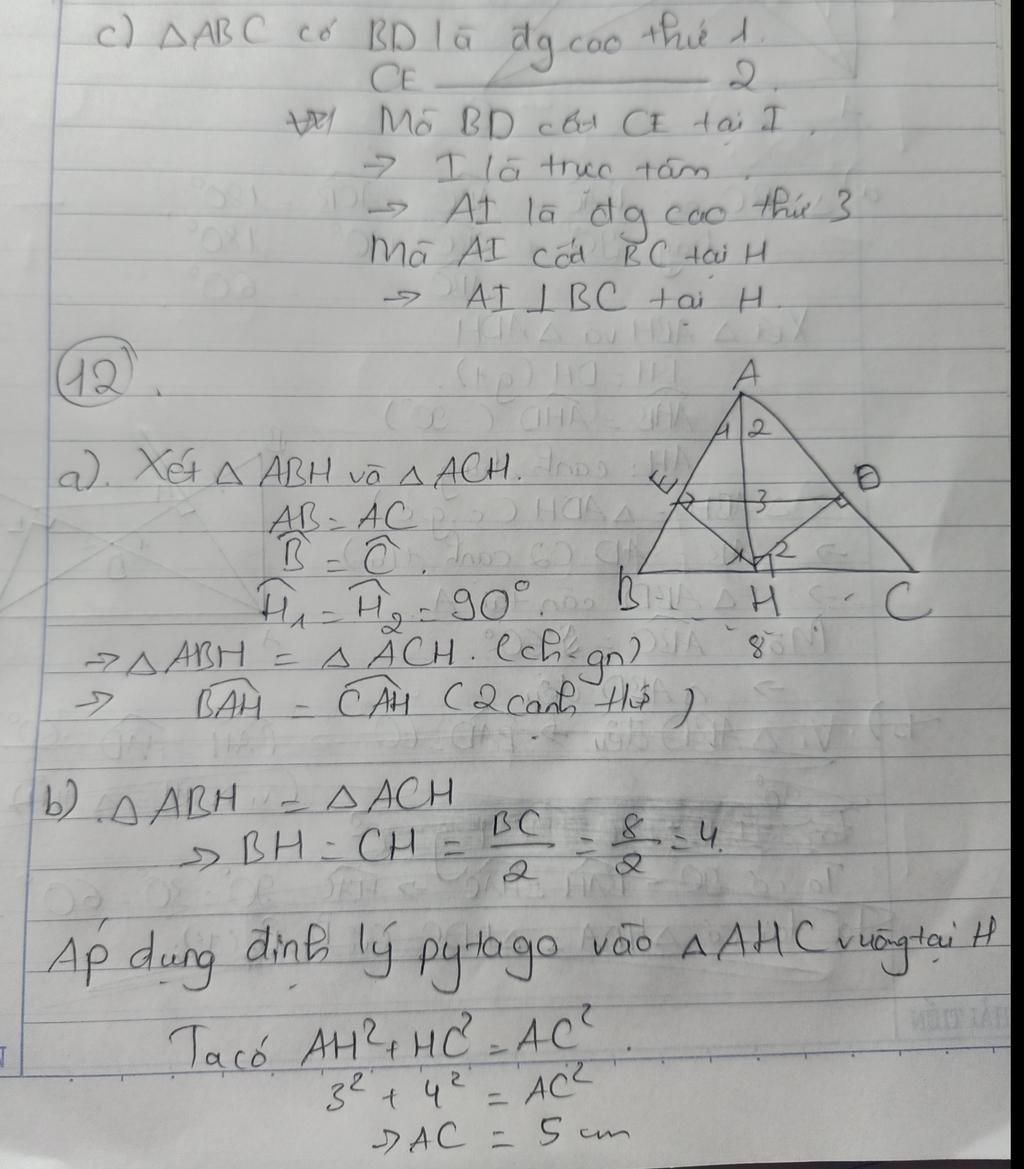 c) △ABC có BD là đg cao thứ 1.
CE ———— 2.
Mà BD cắt CE tại I.
→ I là trực tâm.
→ AI là đg cao thứ 3
Mà AI cắt BC tại H
→ AI ⊥ BC tại H.
12.
A
1 2
E D
3
2
B H C
8
a). Xét △ ABH và △ ACH.
AB = AC
B̂ = Ĉ.
Ĥ₁ = Ĥ₂ = 90°.
→ △ ABH = △ ACH. (ch-gn)
→ BAH = CAH (2 cạnh tứ)
b) △ ABH = △ ACH
→ BH = CH = BC/2 = 8/2 = 4.
Áp dụng định lý pytago vào △ AHC vuông tại H
Ta có AH² + HC² = AC².
3² + 4² = AC²
→ AC = 5 cm